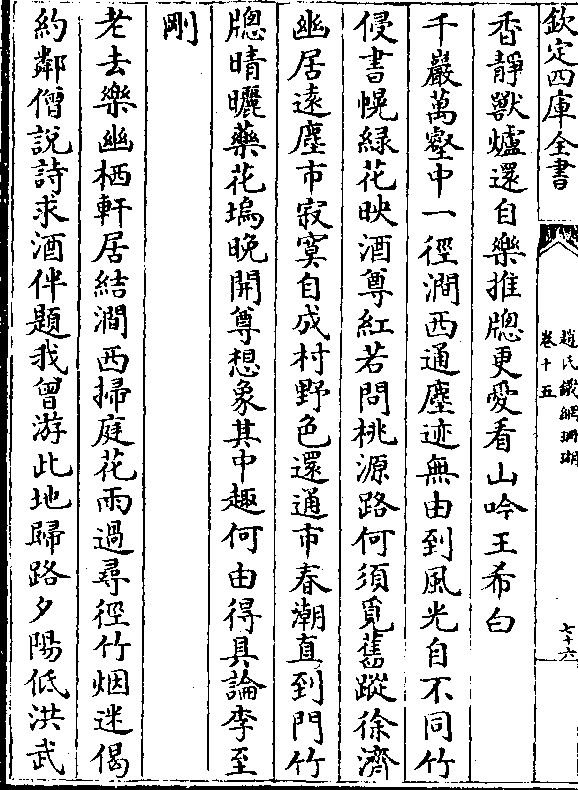 欽定四庫全書
趙氏鐵網珊瑚
卷十五
七十六
香靜獸爐還自樂推牕更愛看山吟王希白
千巖萬壑中一徑澗西通塵迹無由到風光自不同竹
侵書幌緑花映酒尊紅若問桃源路何須覓舊蹤徐濟
幽居遠塵市寂寞自成村野色還通市春潮直到門竹
牕晴曬藥花塢晚開尊想象其中趣何由得具論李至
剛
老去樂幽栖軒居結澗西掃庭花雨過尋徑竹烟迷偈
約鄰僧説詩求酒伴題我曾游此地歸路夕陽低洪武